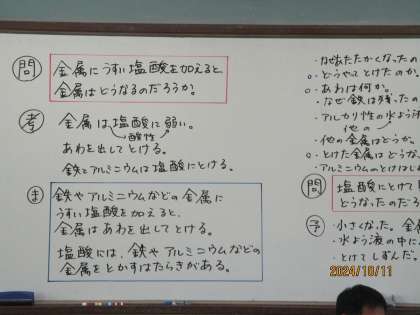 問
金属にうすい塩酸を加えると、
金属はどうなるのだろうか?
考
金属は塩酸に弱い。
酸性
あわを出してとける。
鉄とアルミニウムは塩酸にとける。
ま
鉄やアルミニウムなどの金属に
うすい塩酸を加えると、
金属はあわを出してとける。
塩酸には、鉄やアルミニウムなどの
金属をとかすはたらきがある。
・なぜあたたかくなったの
・どうやってとけたのか。
・あわは何か。
・なぜ鉄は残った
・アルカリ性の水よう
他の
・他の金属はどうか。
・とけた金属はどうな
・アルミニウムのとけ
問
塩酸にとけて
どうなったのだろ
予
・小さくなった。金
・水よう液の中に
・とけてしずんだ。
2024/10/11